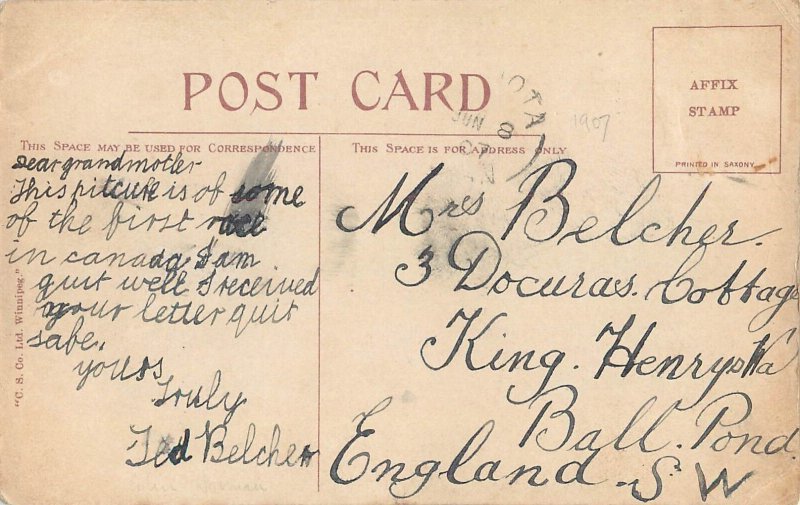 POST CARD
OTA
JUN
8
1907
AFFIX
STAMP
PRINTED IN SAXONY
THIS SPACE MAY BE USED FOR CORRESPONDENCE
THIS SPACE IS FOR ADDRESS ONLY
Dear grandmother
This pitcure is of some
of the first race
in canada I am
quit well I received
your letter quit
safe.
yours
Truly
Ted Belcher
Mrs Belcher.
3 Docuras. Cottage
King. Henrys Wa
Ball. Pond.
England. S W
"C. S. Co. Ltd. Winnipeg."